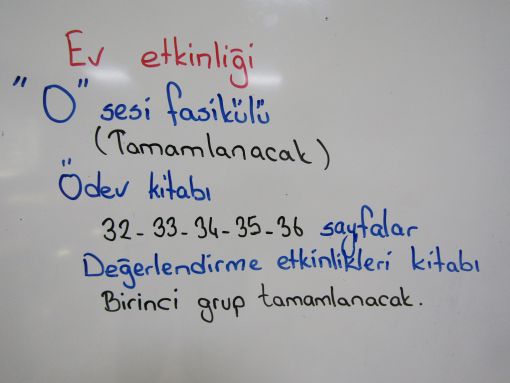 Ev etkinliği
"O" sesi fasikülü
(Tamamlanacak)
Ödev kitabı
32-33-34-35-36 sayfalar
Değerlendirme etkinlikleri kitabı
Birinci grup tamamlanacak.